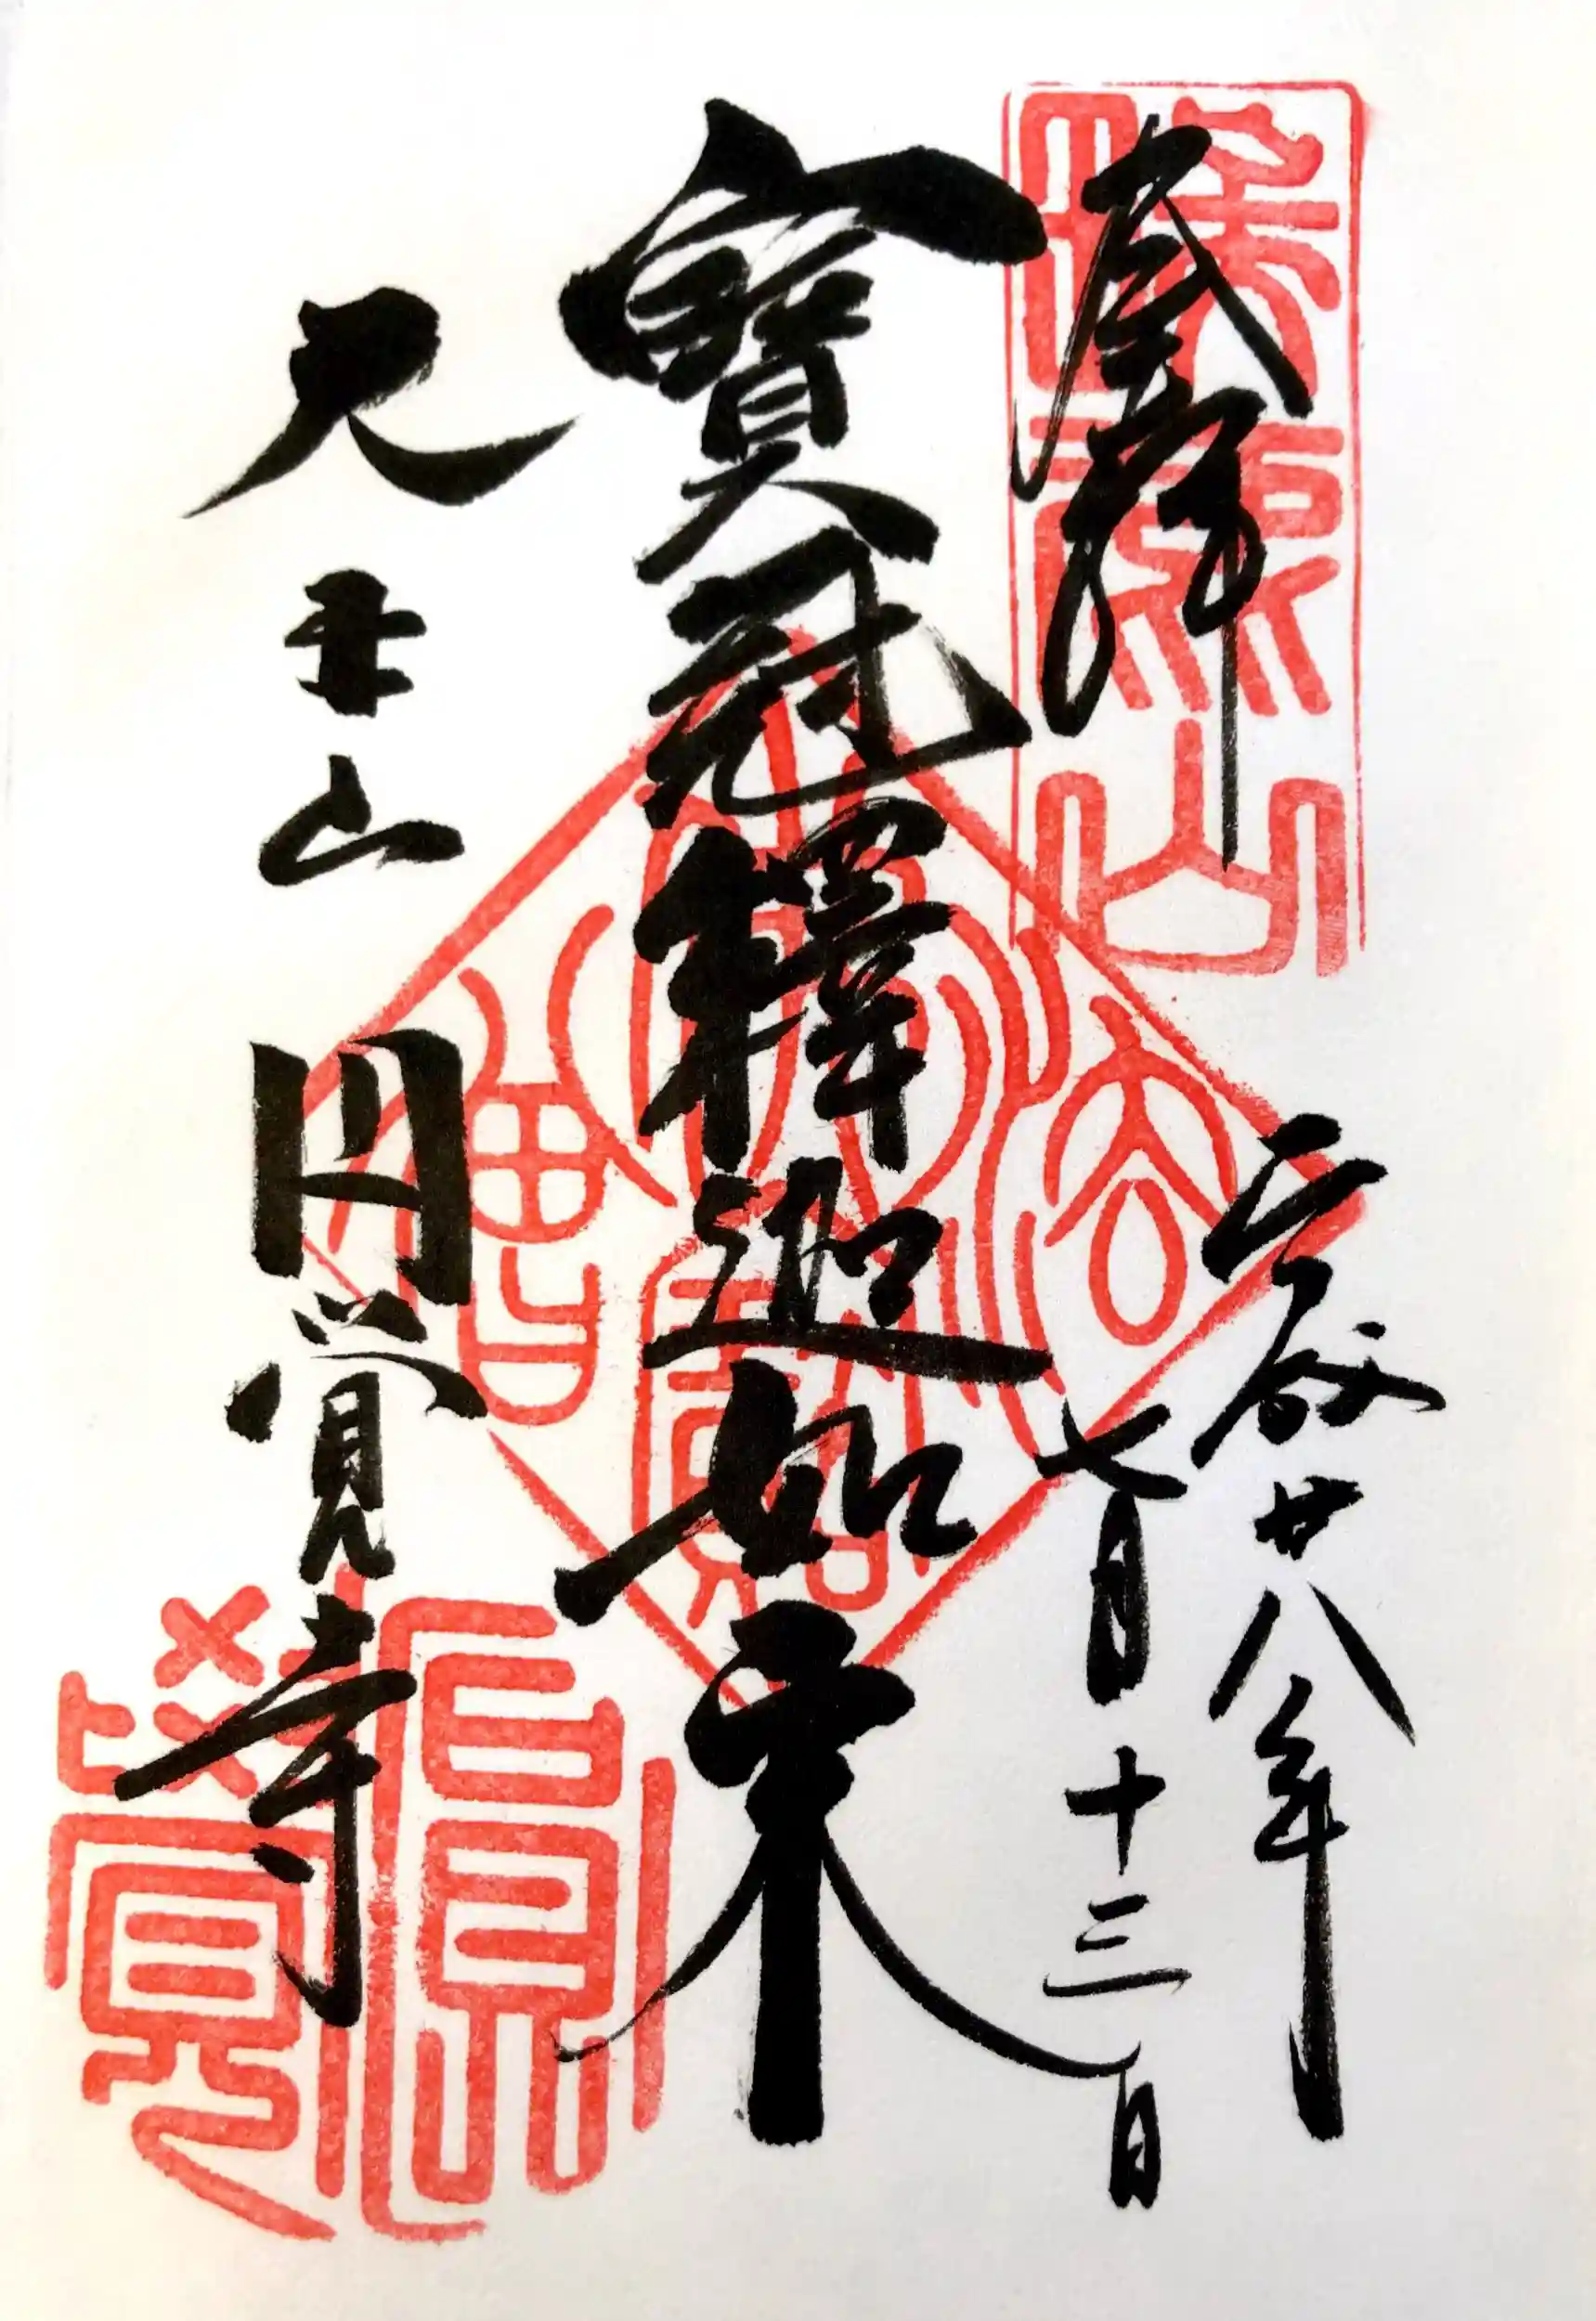 奉拝
平成廿八年
七月十三日
寳冠釋迦如来
大本山
円覚寺
瑞鹿山
圓覺